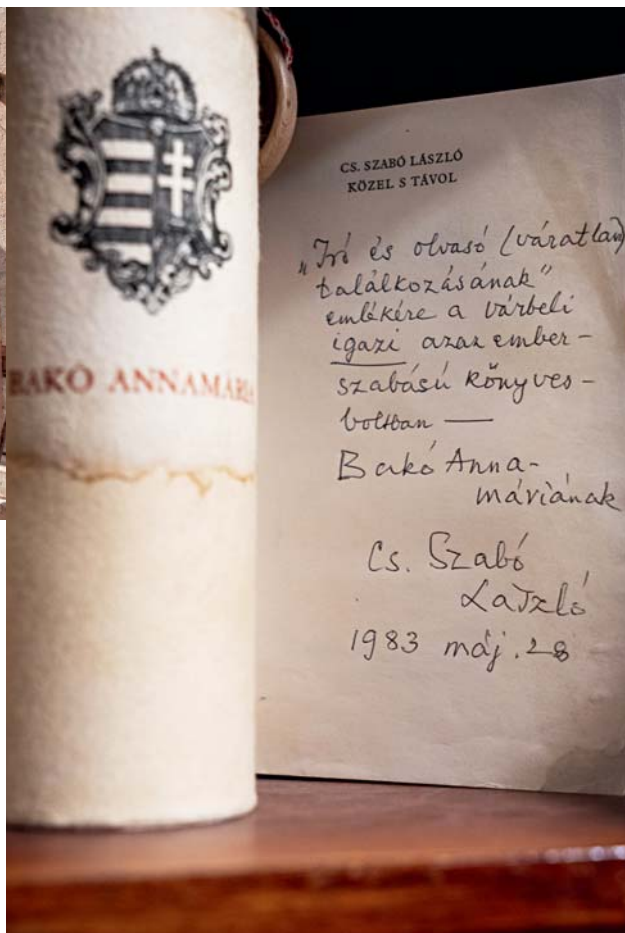 BAKÓ ANNAMÁRIA
CS. SZABÓ LÁSZLÓ
KÖZEL S TÁVOL
„Író és olvasó (váratlan)
találkozásának”
emlékére a várbeli
igazi azaz ember-
szabású könyves-
boltban —
Bakó Anna-
máriának
Cs. Szabó
László
1983 máj. 28